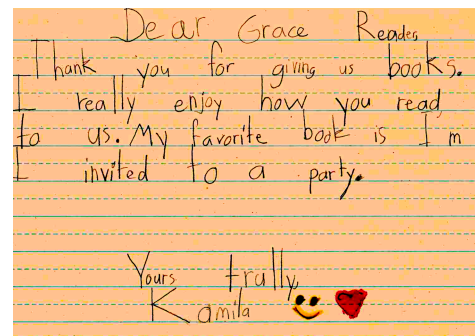 Dear Grace Reades
Thank you for giving us books.
I really enjoy how you read
to us. My favorite book is I m
I invited to a party.
Yours trully,
Kamila